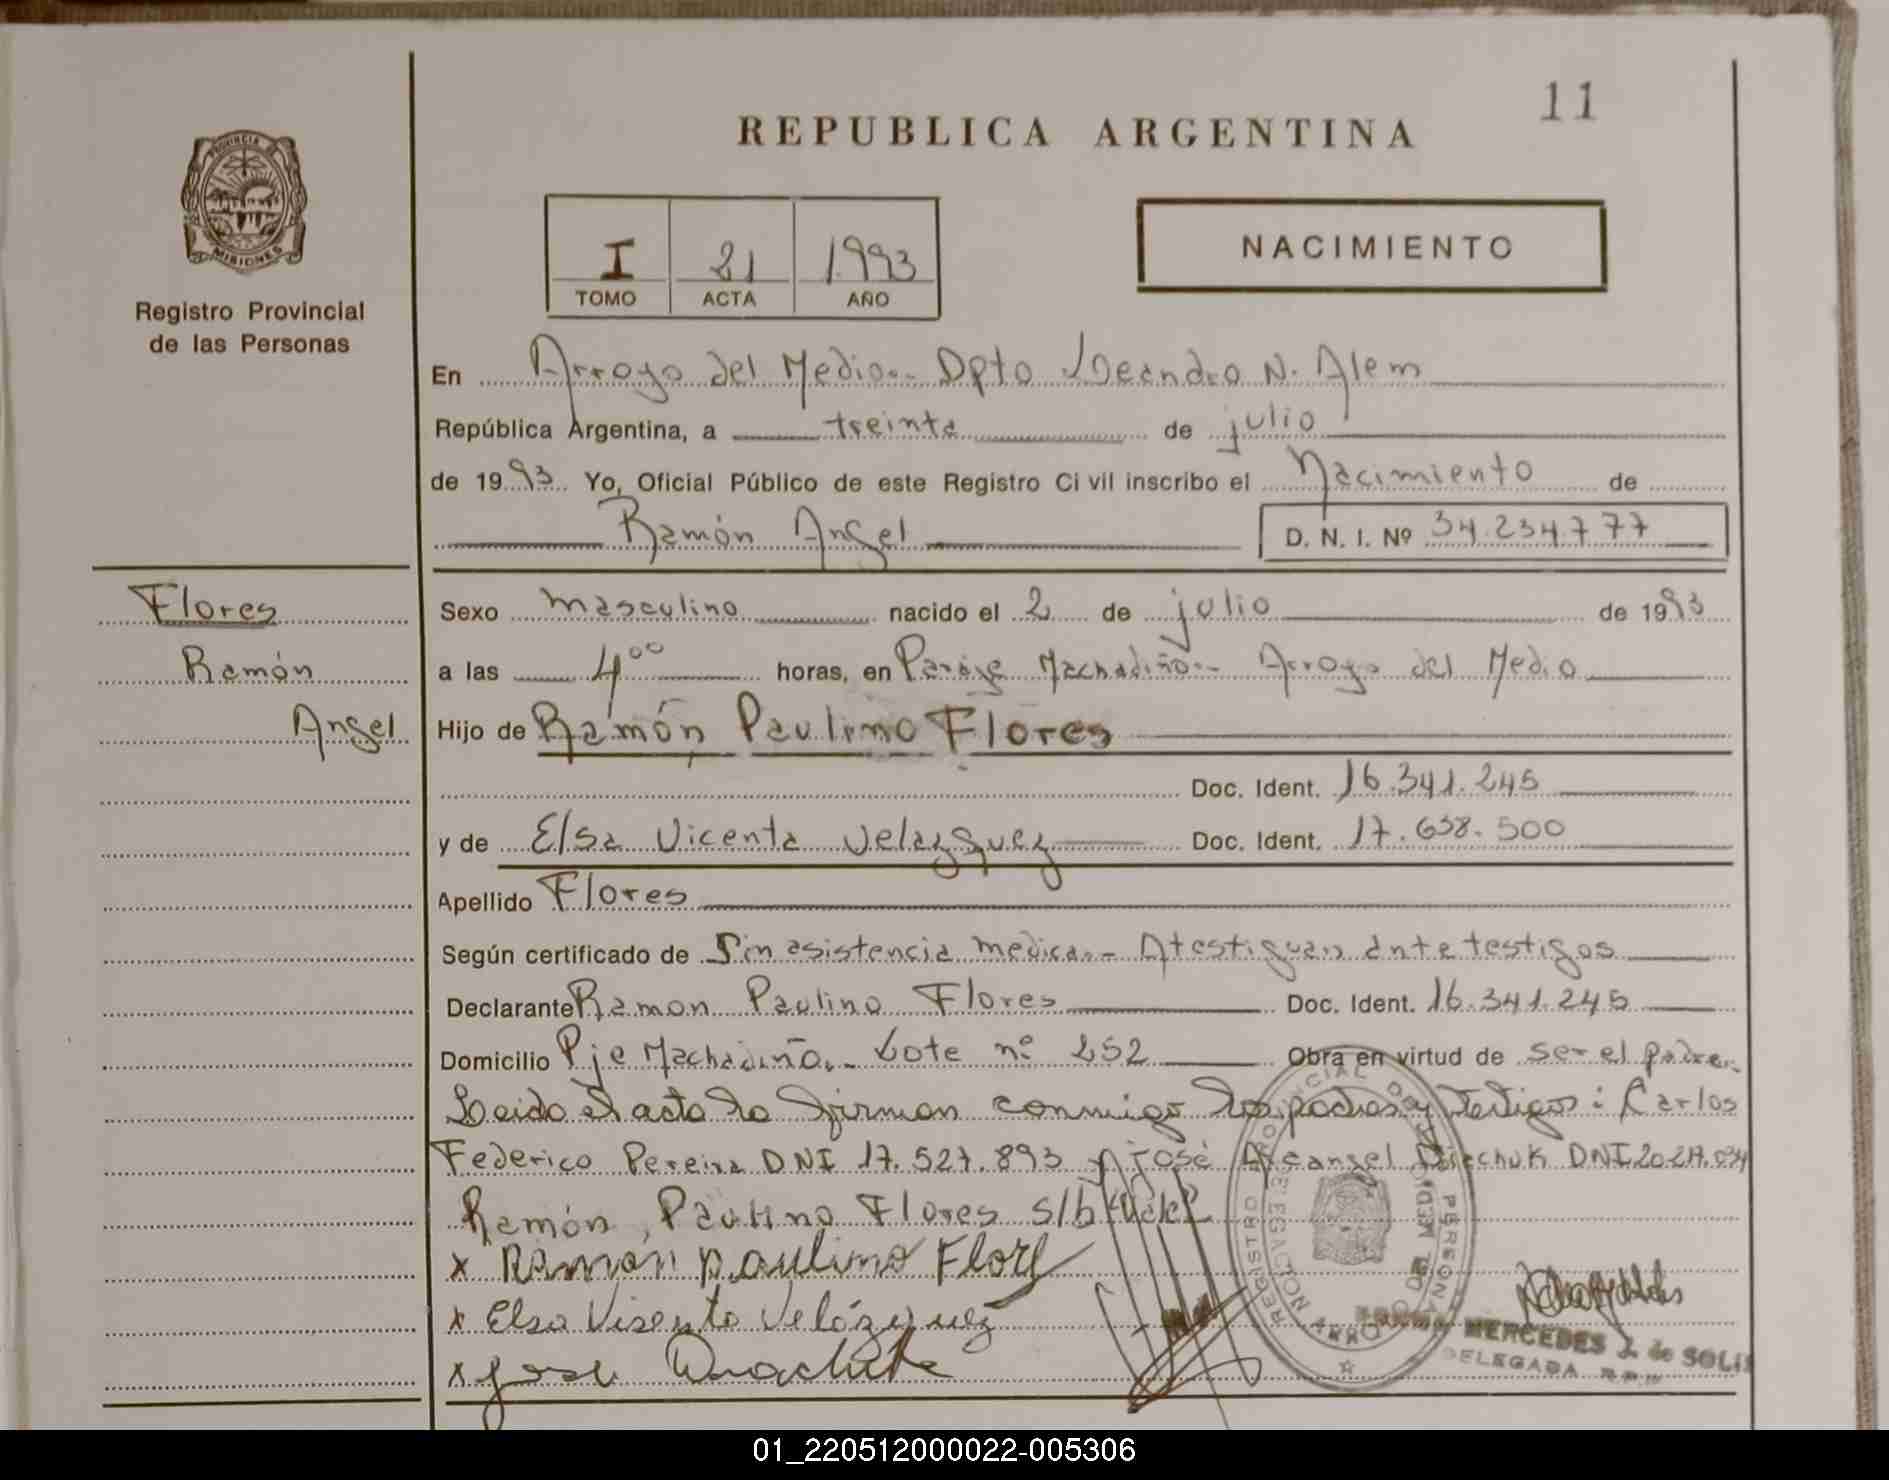 11
REPUBLICA ARGENTINA
PROVINCIA DE MISIONES
Registro Provincial
de las Personas
I 21 1.993
TOMO ACTA AÑO
NACIMIENTO
En Arroyo del Medio.- Dpto Leandro N. Alem
República Argentina, a treinta de julio
de 1993 Yo, Oficial Público de este Registro Ci vil inscribo el Nacimiento de
Ramón Angel D. N. I. Nº 34.234.777
Flores
Ramón
Angel
Sexo masculino nacido el 2 de julio de 1993
a las 4⁰⁰ horas, en Paraje Machadiño.- Arroyo del Medio
Hijo de Ramón Paulino Flores
Doc. Ident. 16.341.245
y de Elsa Vicenta Velazquez Doc. Ident. 17.638.500
Apellido Flores
Según certificado de Sin asistencia medica.- Atestiguan ante testigos
Declarante Ramon Paulino Flores Doc. Ident. 16.341.245
Domicilio Pje Machadiño.- Lote nº 252 Obra en virtud de ser el padre.-
Leido el acta la firman conmigo los padres y testigos: Carlos
Federico Pereira DNI 17.527.893 y José Arcangel DNI
Ramón, Paulino Flores s/b "Vale"
x Ramon Paulino Flores
x Elsa Visenta Velázquez
x Jose
REGISTRO PROVINCIAL DE LAS PERSONAS
ARROYO DEL MEDIO
MERCEDES L. de SOLIS
DELEGADA R.P.P.
01_220512000022-005306